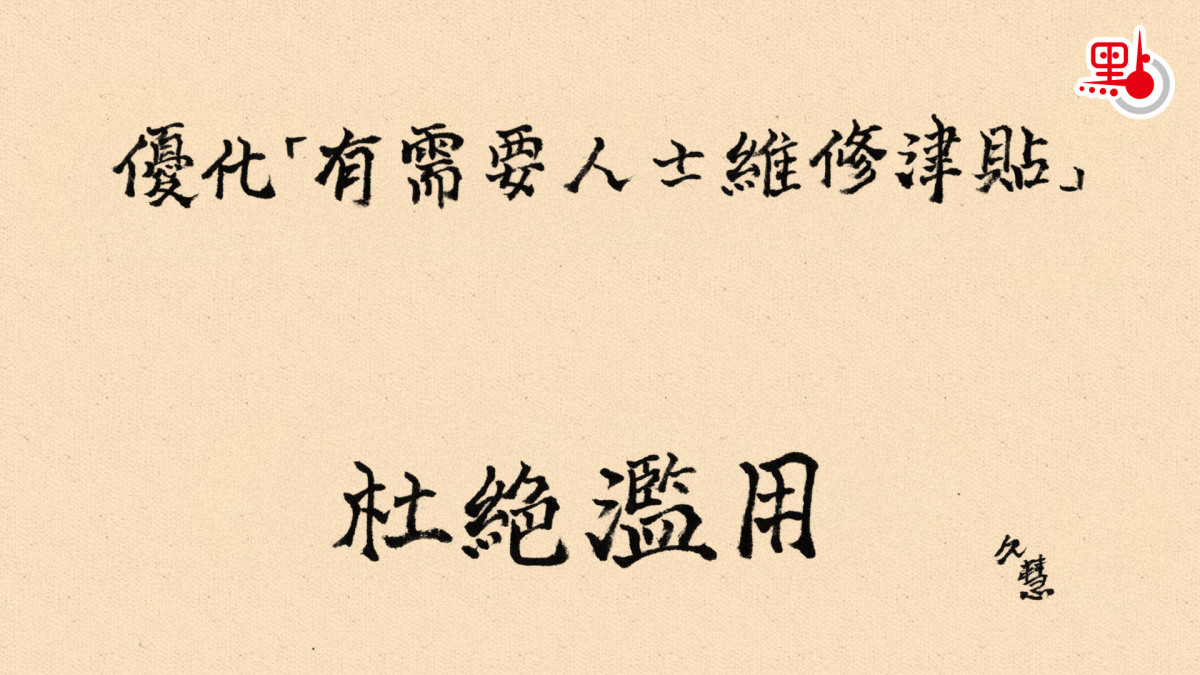 點
優化「有需要人士維修津貼」
杜絕濫用
久慧